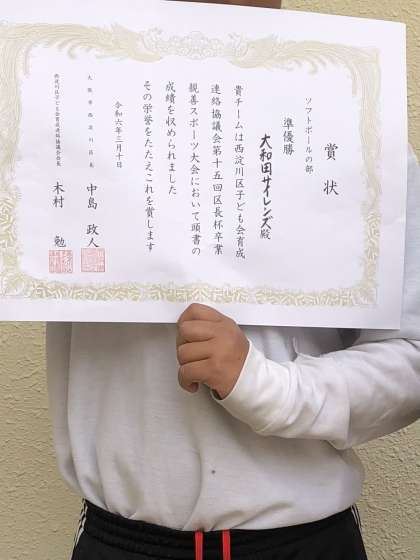 賞状
ソフトボールの部
準優勝
大和田サイレンズ殿
貴チームは西淀川区子ども会育成
連絡協議会第十五回区長杯卒業
親善スポーツ大会において頭書の
成績を収められました
その栄誉をたたえこれを賞します
令和六年三月十日
大阪市西淀川区長
中島政人
西淀川区子ども会育成連絡協議会会長
木村勉